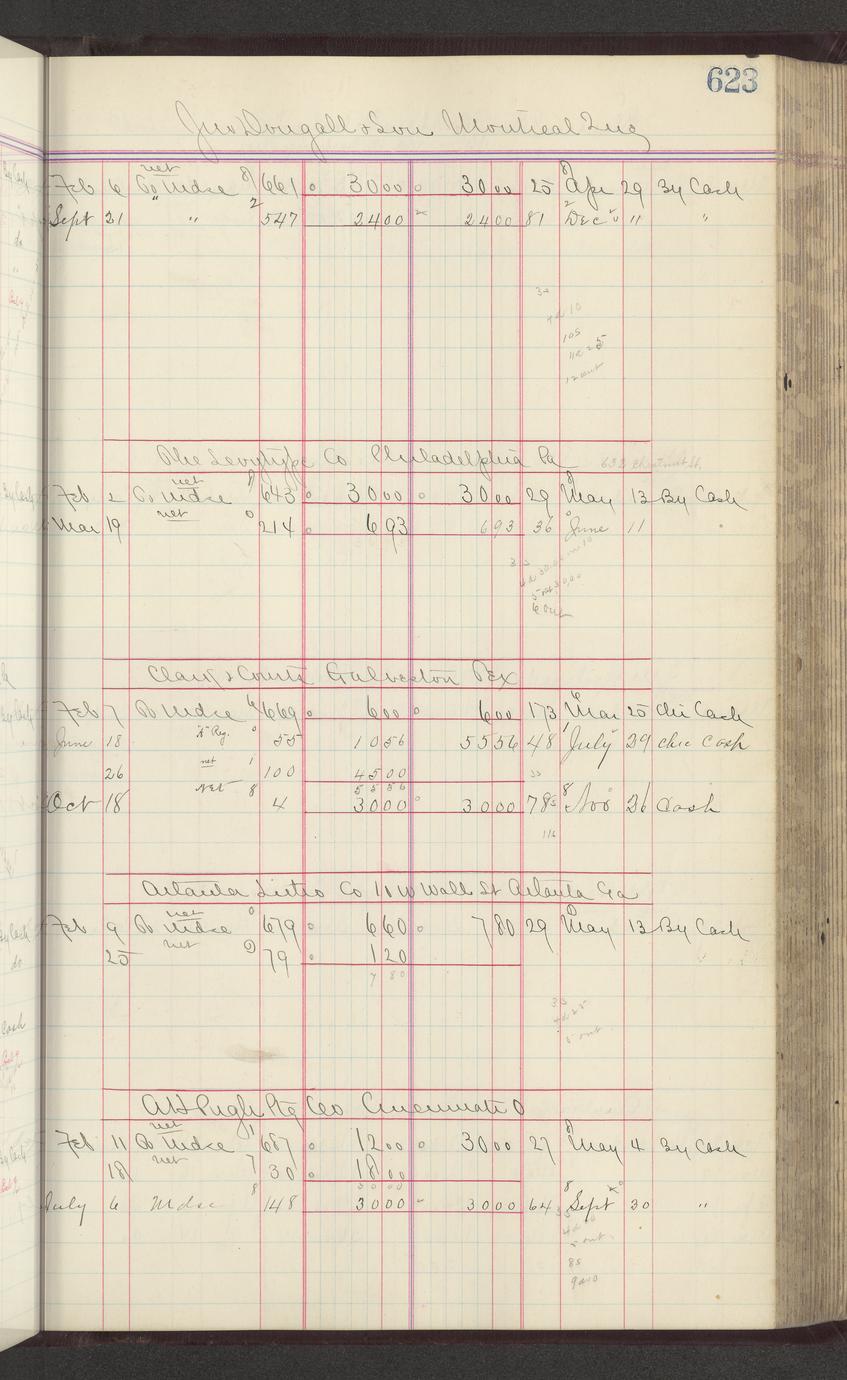 623
Jno Dougall & Son Montreal Que
net
Feb 6 To Mdse 8 661 30 00 30 00 25 Apr 29 By Cash
Sept 21 " " 2 547 24 00 24 00 81 Dec " "
30
4d 10
10s
11d 25
12 out
The Levytype Co Philadelphia Pa 632 Chestnut St.
net
Feb 2 To Mdse 643 30 00 30 00 29 May 13 By Cash
Mar 19 net 0 214 6 93 6 93 36 June 11 "
3s
6 out
Clarg & Courts Galveston Tex
Feb 7 To Mdse 669 6 00 6 00 173 Mar 25 Chi Cash
June 18 Reg. 0 55 10 56 55 56 48 July 29 chic cash
26 net 1 100 45 00
55 56
Oct 18 Net 8 4 30 00 30 00 78 Nov 26 Cash
116
Atlanta Litho Co 11 W Wall St Atlanta Ga
net
Feb 9 To Mdse 0 679 6 60 7 80 29 May 13 By Cash
25 net 9 79 1 20
7 80
3s
4d 25
5 out
A H Pugh Ptg Co Cincinnati O
net
Feb 11 To Mdse 1 687 12 00 30 00 27 May 4 By Cash
18 net 7 30 18 00
30 00
July 6 Mdse 8 148 30 00 30 00 64 Sept 30 "
5 out
8s
9d10